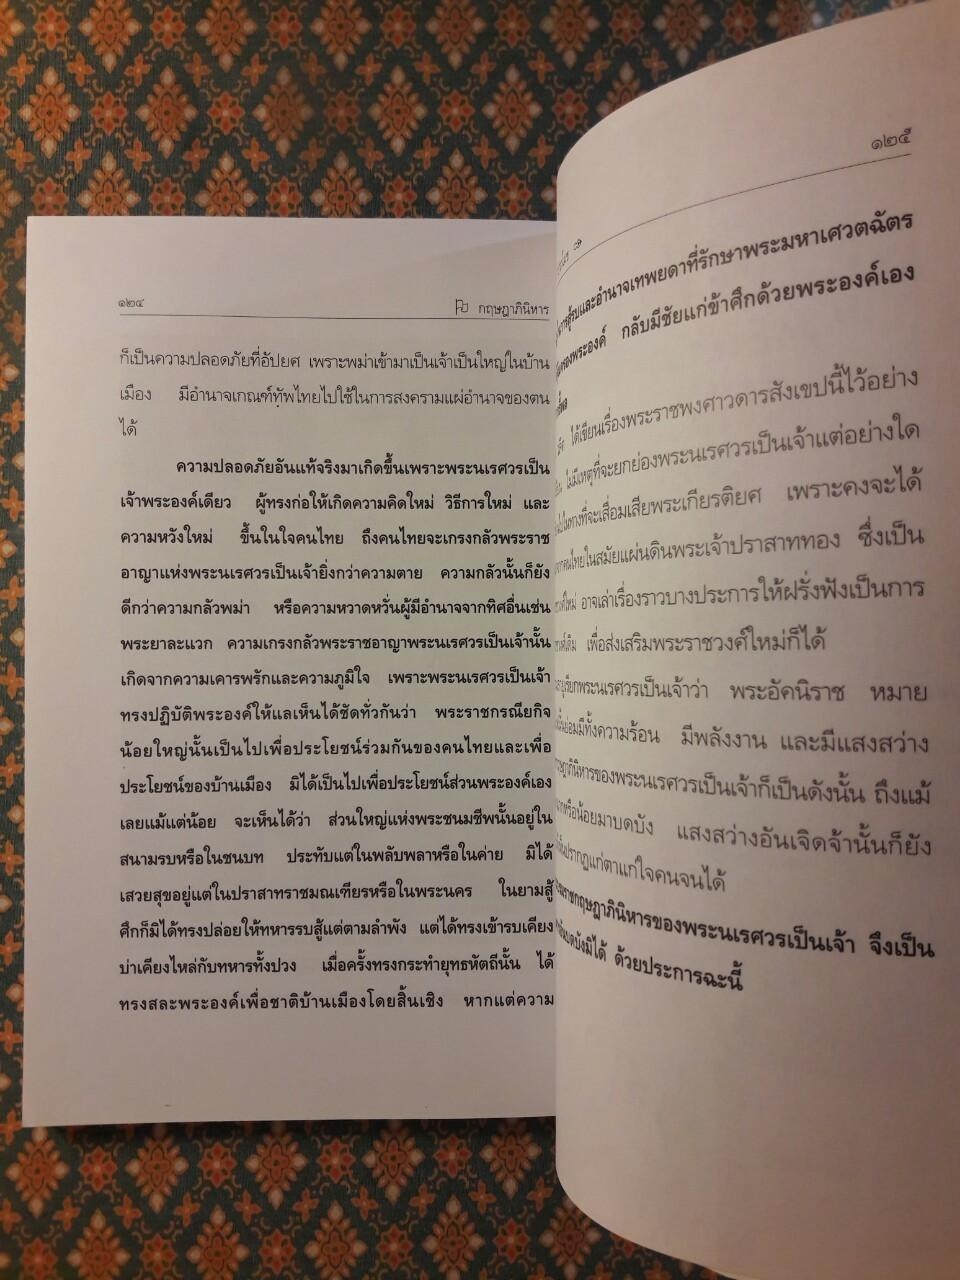 ๑๒๔
กฤษฎาภินิหาร
ก็เป็นความปลอดภัยที่อัปยศ เพราะพม่าเข้ามาเป็นเจ้าเป็นใหญ่ในบ้าน
เมือง มีอำนาจเกณฑ์ทัพไทยไปใช้ในการสงครามแผ่อำนาจของตน
ได้
ความปลอดภัยอันแท้จริงมาเกิดขึ้นเพราะพระนเรศวรเป็น
เจ้าพระองค์เดียว ผู้ทรงก่อให้เกิดความคิดใหม่ วิธีการใหม่ และ
ความหวังใหม่ ขึ้นในใจคนไทย ถึงคนไทยจะเกรงกลัวพระราช
อาญาแห่งพระนเรศวรเป็นเจ้ายิ่งกว่าความตาย ความกลัวนั้นก็ยัง
ดีกว่าความกลัวพม่า หรือความหวาดหวั่นผู้มีอำนาจจากทิศอื่นเช่น
พระยาละแวก ความเกรงกลัวพระราชอาญาพระนเรศวรเป็นเจ้านั้น
เกิดจากความเคารพรักและความภูมิใจ เพราะพระนเรศวรเป็นเจ้า
ทรงปฏิบัติพระองค์ให้แลเห็นได้ชัดทั่วกันว่า พระราชกรณียกิจ
น้อยใหญ่นั้นเป็นไปเพื่อประโยชน์ร่วมกันของคนไทยและเพื่อ
ประโยชน์ของบ้านเมือง มิได้เป็นไปเพื่อประโยชน์ส่วนพระองค์เอง
เลยแม้แต่น้อย จะเห็นได้ว่า ส่วนใหญ่แห่งพระชนมชีพนั้นอยู่ใน
สนามรบหรือในชนบท ประทับแต่ในพลับพลาหรือในค่าย มิได้
เสวยสุขอยู่แต่ในปราสาทราชมณเฑียรหรือในพระนคร ในยามสู้
ศึกก็มิได้ทรงปล่อยให้ทหารรบสู้แต่ตามลำพัง แต่ได้ทรงเข้ารบเคียง
บ่าเคียงไหล่กับทหารทั้งปวง เมื่อครั้งทรงกระทำยุทธหัตถีนั้น ได้
ทรงสละพระองค์เพื่อชาติบ้านเมืองโดยสิ้นเชิง หากแต่ความ
๑๒๕
การสู้รบและอำนาจเทพยดาที่รักษาพระมหาเศวตฉัตร
พระองค์ กลับมีชัยแก่ข้าศึกด้วยพระองค์เอง
ได้เขียนเรื่องพระราชพงศาวดารสังเขปนี้ไว้อย่าง
ไม่มีเหตุที่จะยกย่องพระนเรศวรเป็นเจ้าแต่อย่างใด
ในทางที่จะเสื่อมเสียพระเกียรติยศ เพราะคงจะได้
คนไทยในสมัยแผ่นดินพระเจ้าปราสาททอง ซึ่งเป็น
อาจเล่าเรื่องราวบางประการให้ฝรั่งฟังเป็นการ
เพื่อส่งเสริมพระราชวงศ์ใหม่ก็ได้
เรียกพระนเรศวรเป็นเจ้าว่า พระอัคนิราช หมาย
ย่อมมีทั้งความร้อน มีพลังงาน และมีแสงสว่าง
ของพระนเรศวรเป็นเจ้าก็เป็นดังนั้น ถึงแม้
หรือน้อยมาบดบัง แสงสว่างอันเจิดจ้านั้นก็ยัง
ปรากฏแก่ตาแก่ใจคนจนได้
กฤษฎาภินิหารของพระนเรศวรเป็นเจ้า จึงเป็น
บดบังมิได้ ด้วยประการฉะนี้